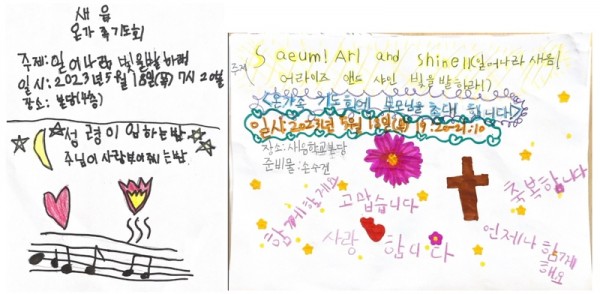 새 음
온가족기도회
주제: 일어나라 빛을발하라
일시: 2023년 5월 18일(목) 7시 20분
장소: 본당(4층)
성령이 임하는밤
주님이 사랑부어줘는밤
주제
Saeum! Ari and shine!!(일어나라 새음!
어라이즈 앤드 샤인 빛을발하라!)
<온가족 기도회에 부모님을 초대 합니다>
일시 2023년 5월 18일(목) 19:20~21:10
장소:새음학교본당
준비물:손수건
고맙습니다
축복합니다
함께할게요
사랑 합니다
언제나 함께
해요